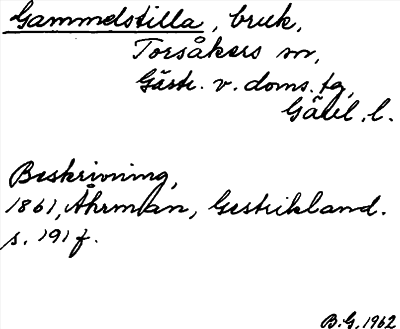 Gammelstilla, bruk,
Torsåkers sn,
Gästr. v. doms. tg,
Gävl. l.
Beskrivning,
1861, Åhrman, Gestrikland.
s. 191 f.
B.G. 1962